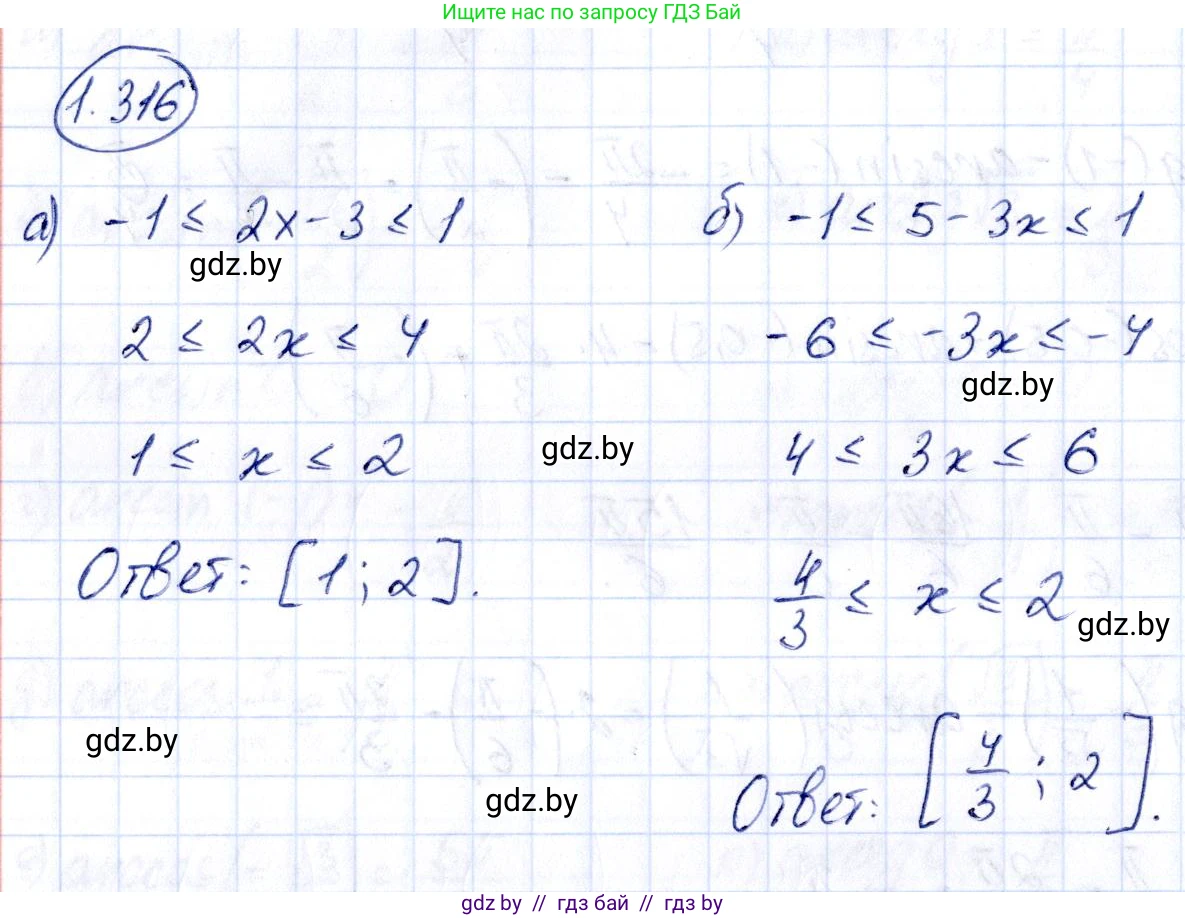 Ищите нас по запросу ГДЗ Бай
1.316
а) -1 ≤ 2x - 3 ≤ 1
gdz.by
2 ≤ 2x ≤ 4
1 ≤ x ≤ 2
gdz.by
Ответ: [1; 2].
gdz.by
б) -1 ≤ 5 - 3x ≤ 1
-6 ≤ -3x ≤ -4
gdz.by
4 ≤ 3x ≤ 6
4/3 ≤ x ≤ 2
gdz.by
gdz.by
Ответ: [4/3; 2].
gdz.by // гдз бай // гдз by